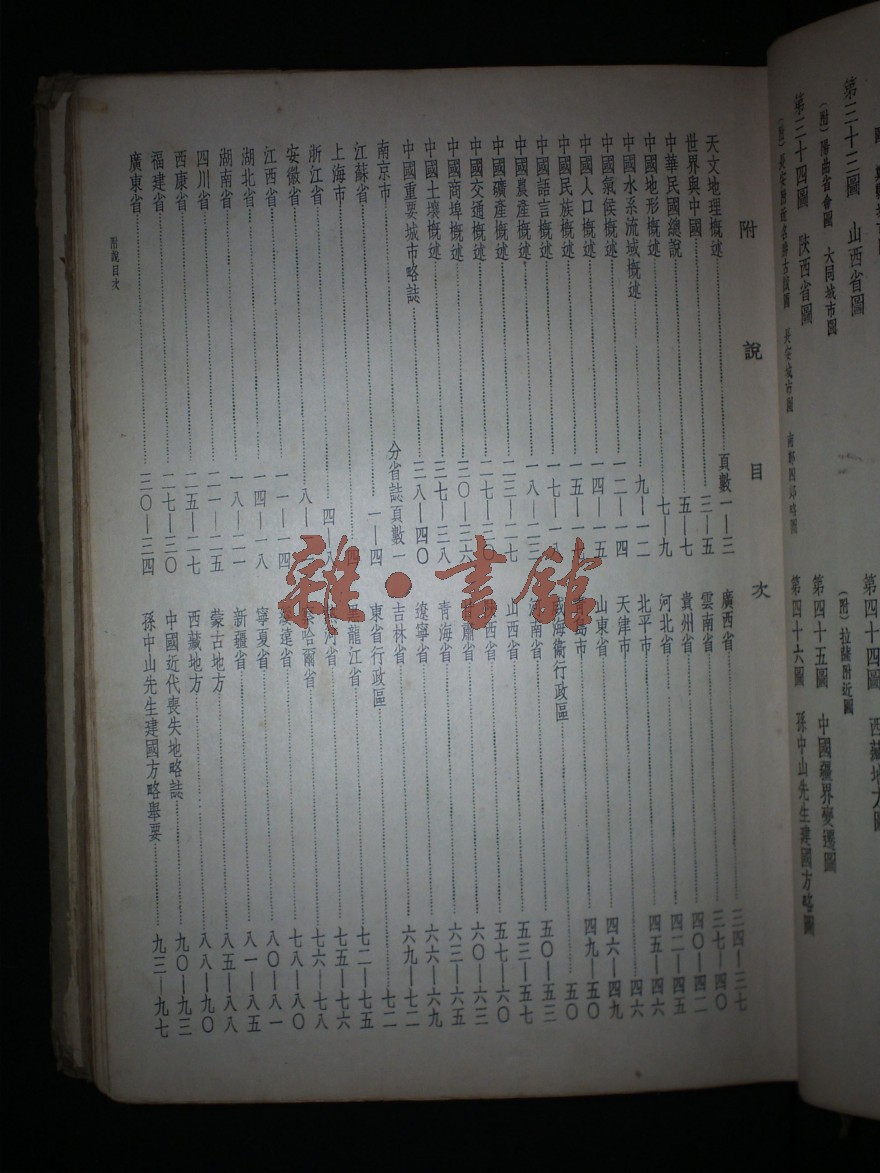 第三十三圖 山西省圖
（附）陽曲省會圖 大同城市圖
第三十四圖 陝西省圖
（附）長安附近名勝古蹟圖 長安城市圖 南鄭四郊略圖
第四十四圖 西藏地方圖
（附）拉薩附近圖
第四十五圖 中國疆界變遷圖
第四十六圖 孫中山先生建國方略圖
附說目次
天文地理概述 頁數一—三
世界與中國 三—五
中華民國總說 五—七
中國地形概述 七—九
中國水系流域概述 九—一二
中國氣候概述 一二—一四
中國人口概述 一四—一五
中國民族概述 一五—一七
中國語言概述 一七—一八
中國農產概述 一八—二三
中國礦產概述 二三—二七
中國交通概述 二七—三〇
中國商埠概述 三〇—三六
中國土壤概述 三七—三八
中國重要城市略誌 三八—四〇
南京市 分省誌頁數一
江蘇省 一—四
上海市 四
浙江省 四—八
安徽省 八—
江西省 一一—一四
湖北省 一四—一八
湖南省 一八—二一
四川省 二一—二五
西康省 二五—二七
福建省 二七—三〇
廣東省 三〇—三四
廣西省 三四—三七
雲南省 三七—四〇
貴州省 四〇—四二
河北省 四二—四五
北平市 四五—四六
天津市 四六
山東省 四六—四九
青島市 四九—五〇
威海衞行政區 五〇
河南省 五〇—五三
山西省 五三—五七
陝西省 五七—六〇
甘肅省 六〇—六三
青海省 六三—六五
遼寧省 六六—六九
吉林省 六九—七二
東省行政區 七二
黑龍江省 七二—七五
熱河省 七五—七六
察哈爾省 七六—七八
綏遠省 七八—八〇
寧夏省 八〇—八一
新疆省 八一—八五
蒙古地方 八五—八八
西藏地方 八八—九〇
中國近代喪失地略誌 九〇—九三
孫中山先生建國方略舉要 九三—九七
附說目次
雜·書館